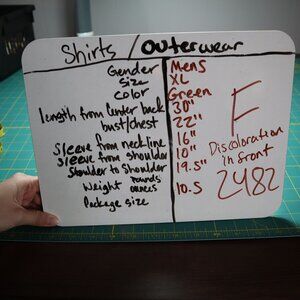 Shirts / Outerwear
Gender Mens
Size XL
Color Green
length from center back 30"
bust/chest 22"
Sleeve from neckline 16"
Sleeve from shoulder 10"
Shoulder to Shoulder 19.5"
Weight pounds
ounces 10.5
Package size
F
Discoloration
in front
2482